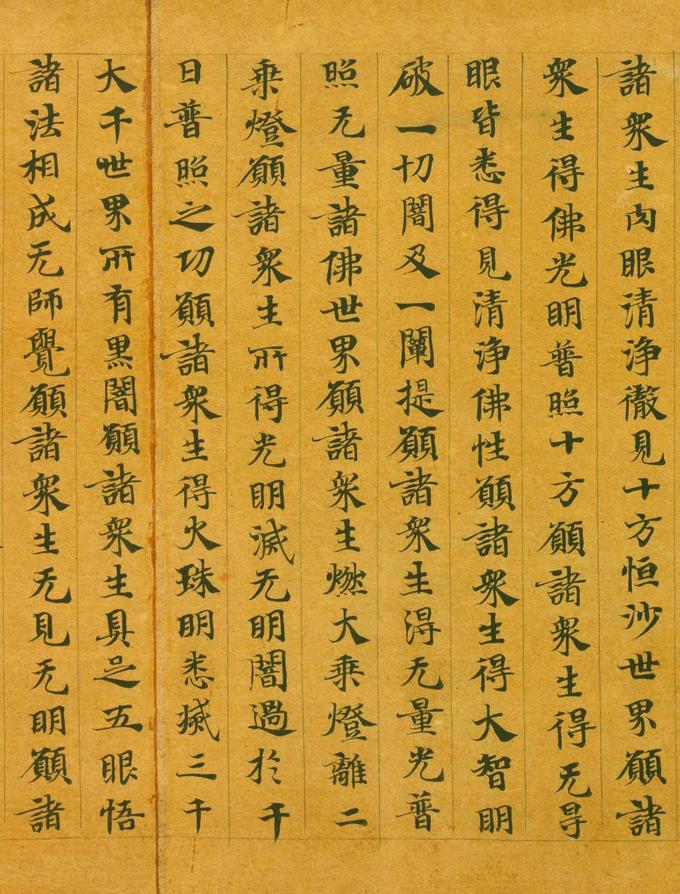 諸衆生肉眼清浄徹見十方恒沙世界願諸
衆生得佛光明普照十方願諸衆生得无㝵
眼皆悉得見清浄佛性願諸衆生得大智明
破一切闇及一闡提願諸衆生得无量光普
照无量諸佛世界願諸衆生燃大乗燈離二
乗燈願諸衆生所得光明滅无明闇過於千
日普照之功願諸衆生得火珠明悉滅三千
大千世界所有黒闇願諸衆生具足五眼悟
諸法相成无師覺願諸衆生无見无明願諸